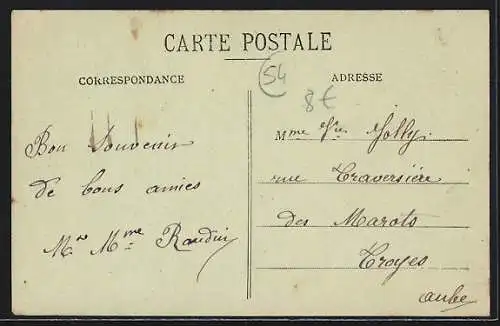 CARTE POSTALE
CORRESPONDANCE
ADRESSE
54
8€
Bon Souvenir
de bons amies
Mr Mme Raudin
Mme Vve Jolly
rue Traversière
des Marots
Troyes
aube